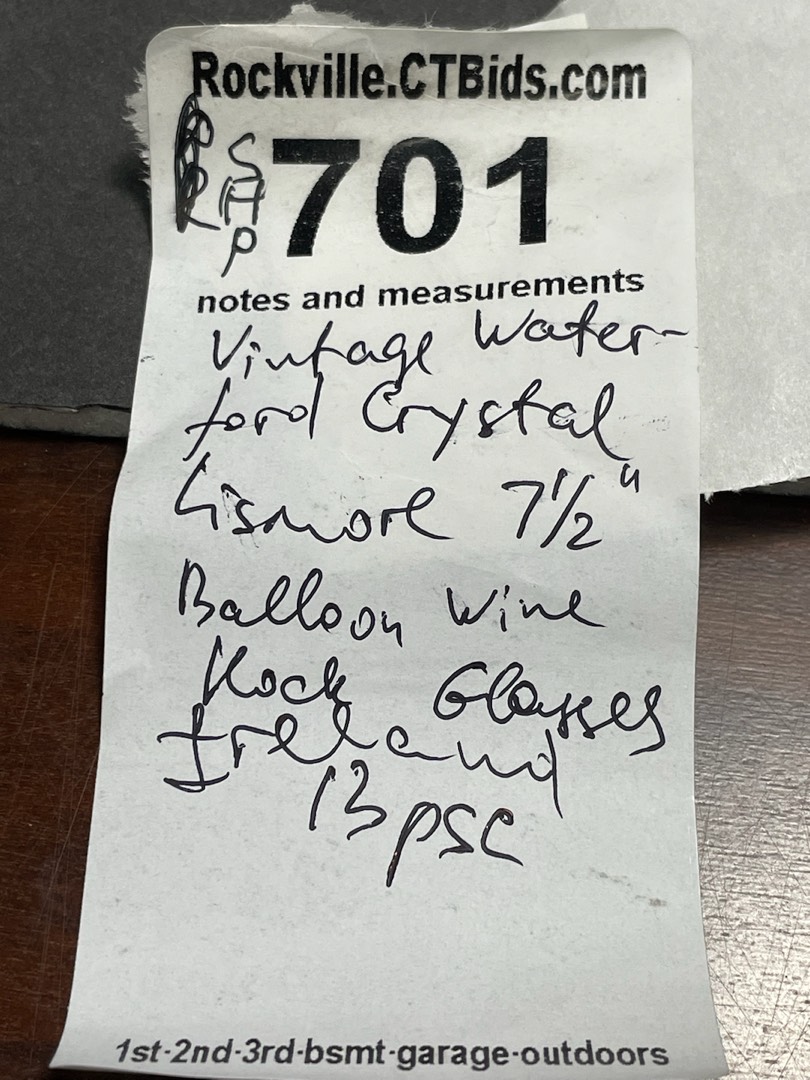 Rockville.CTBids.com
SHP
701
notes and measurements
Vintage Water-
ford Crystal
Lismore 7 1/2"
Balloon Wine
Hock Glasses
Ireland
13 psc
1st-2nd-3rd-bsmt-garage-outdoors